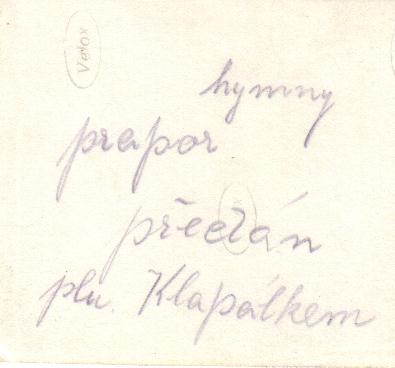 Velox
hymny
prapor
předán
plu. Klapálkem